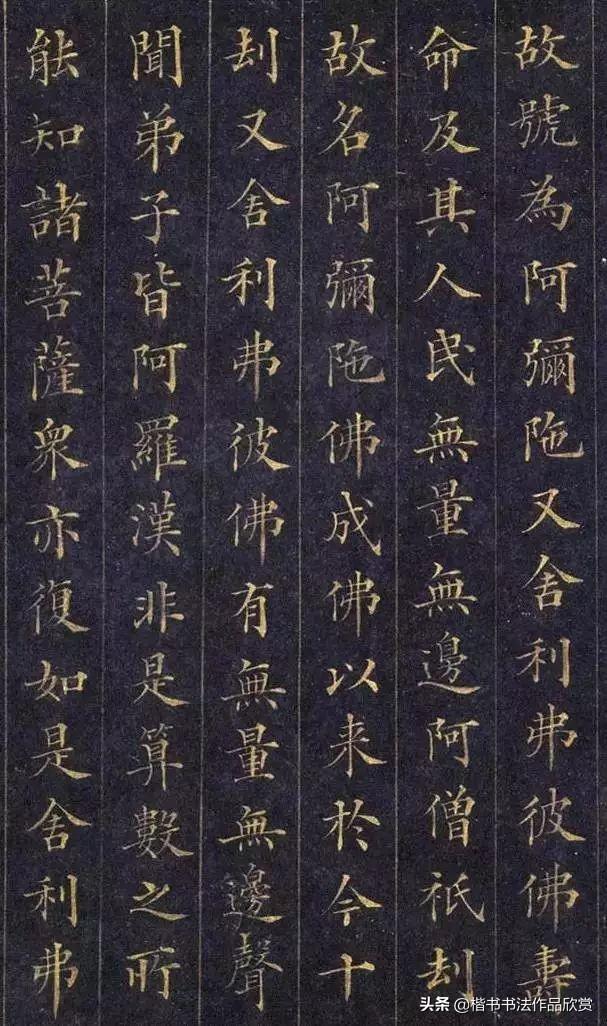 故號為阿彌陁又舍利弗彼佛壽
命及其人民無量無邊阿僧祇刦
故名阿彌陁佛成佛以来於今十
刦又舍利弗彼佛有無量無邊聲
聞弟子皆阿羅漢非是算數之所
能知諸菩薩衆亦復如是舍利弗
头条 @楷书书法作品欣赏